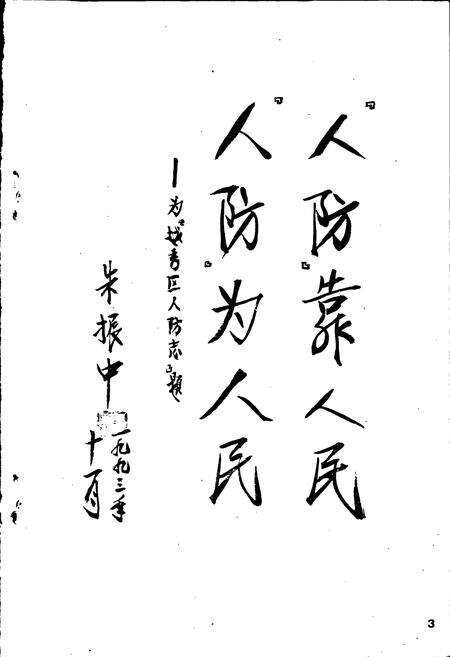 『人防』靠人民
『人防』为人民
—为『越秀区人防志』题
朱振中
一九九三年
十一月
3